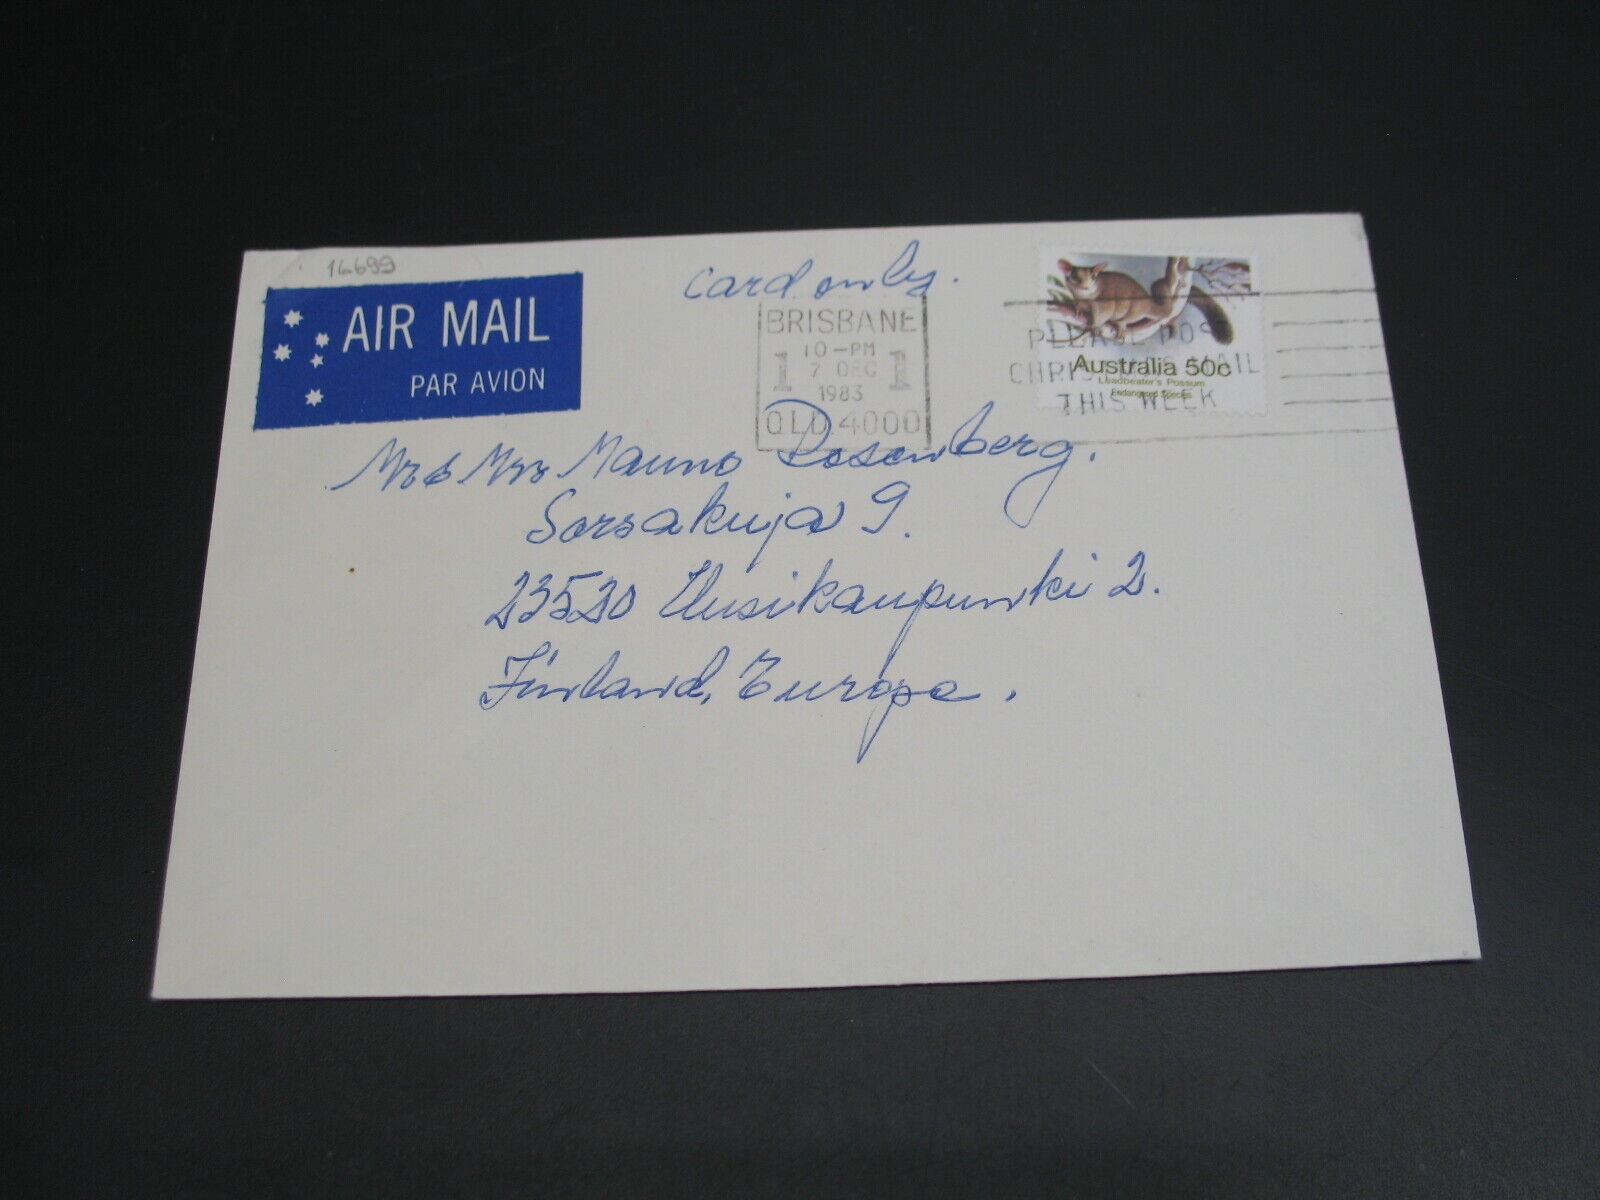 16699
card only.
AIR MAIL
PAR AVION
BRISBANE
10-PM
1 7 DEC 1
1983
QLD. 4000
PLEASE POST
CHRISTMAS MAIL
THIS WEEK
Australia 50c
Leadbeater's Possum
Endangered Species
Mr & Mrs Mauno Rosenberg.
Sorsakuja 9.
23530 Uusikaupunki 2.
Finland, Europe.